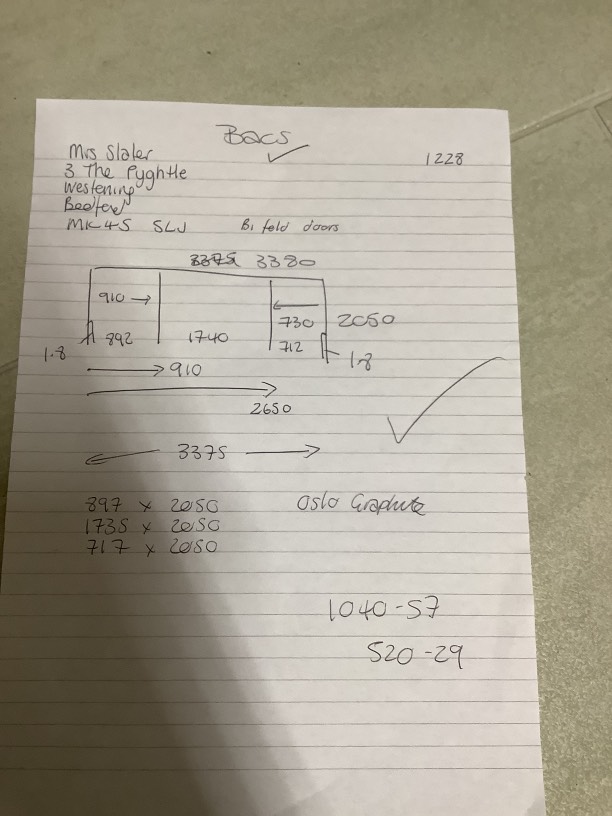 Bacs
Mrs Slater
1228
3 The Pyghtle
Westening
Bedford
MK45 5LJ
Bi fold doors
3375 3380
910
892
1740
730
712
2050
1.8
1.8
910
2650
3375
897 x 2050
Oslo Graphite
1735 x 2050
717 x 2050
1040-57
520-29